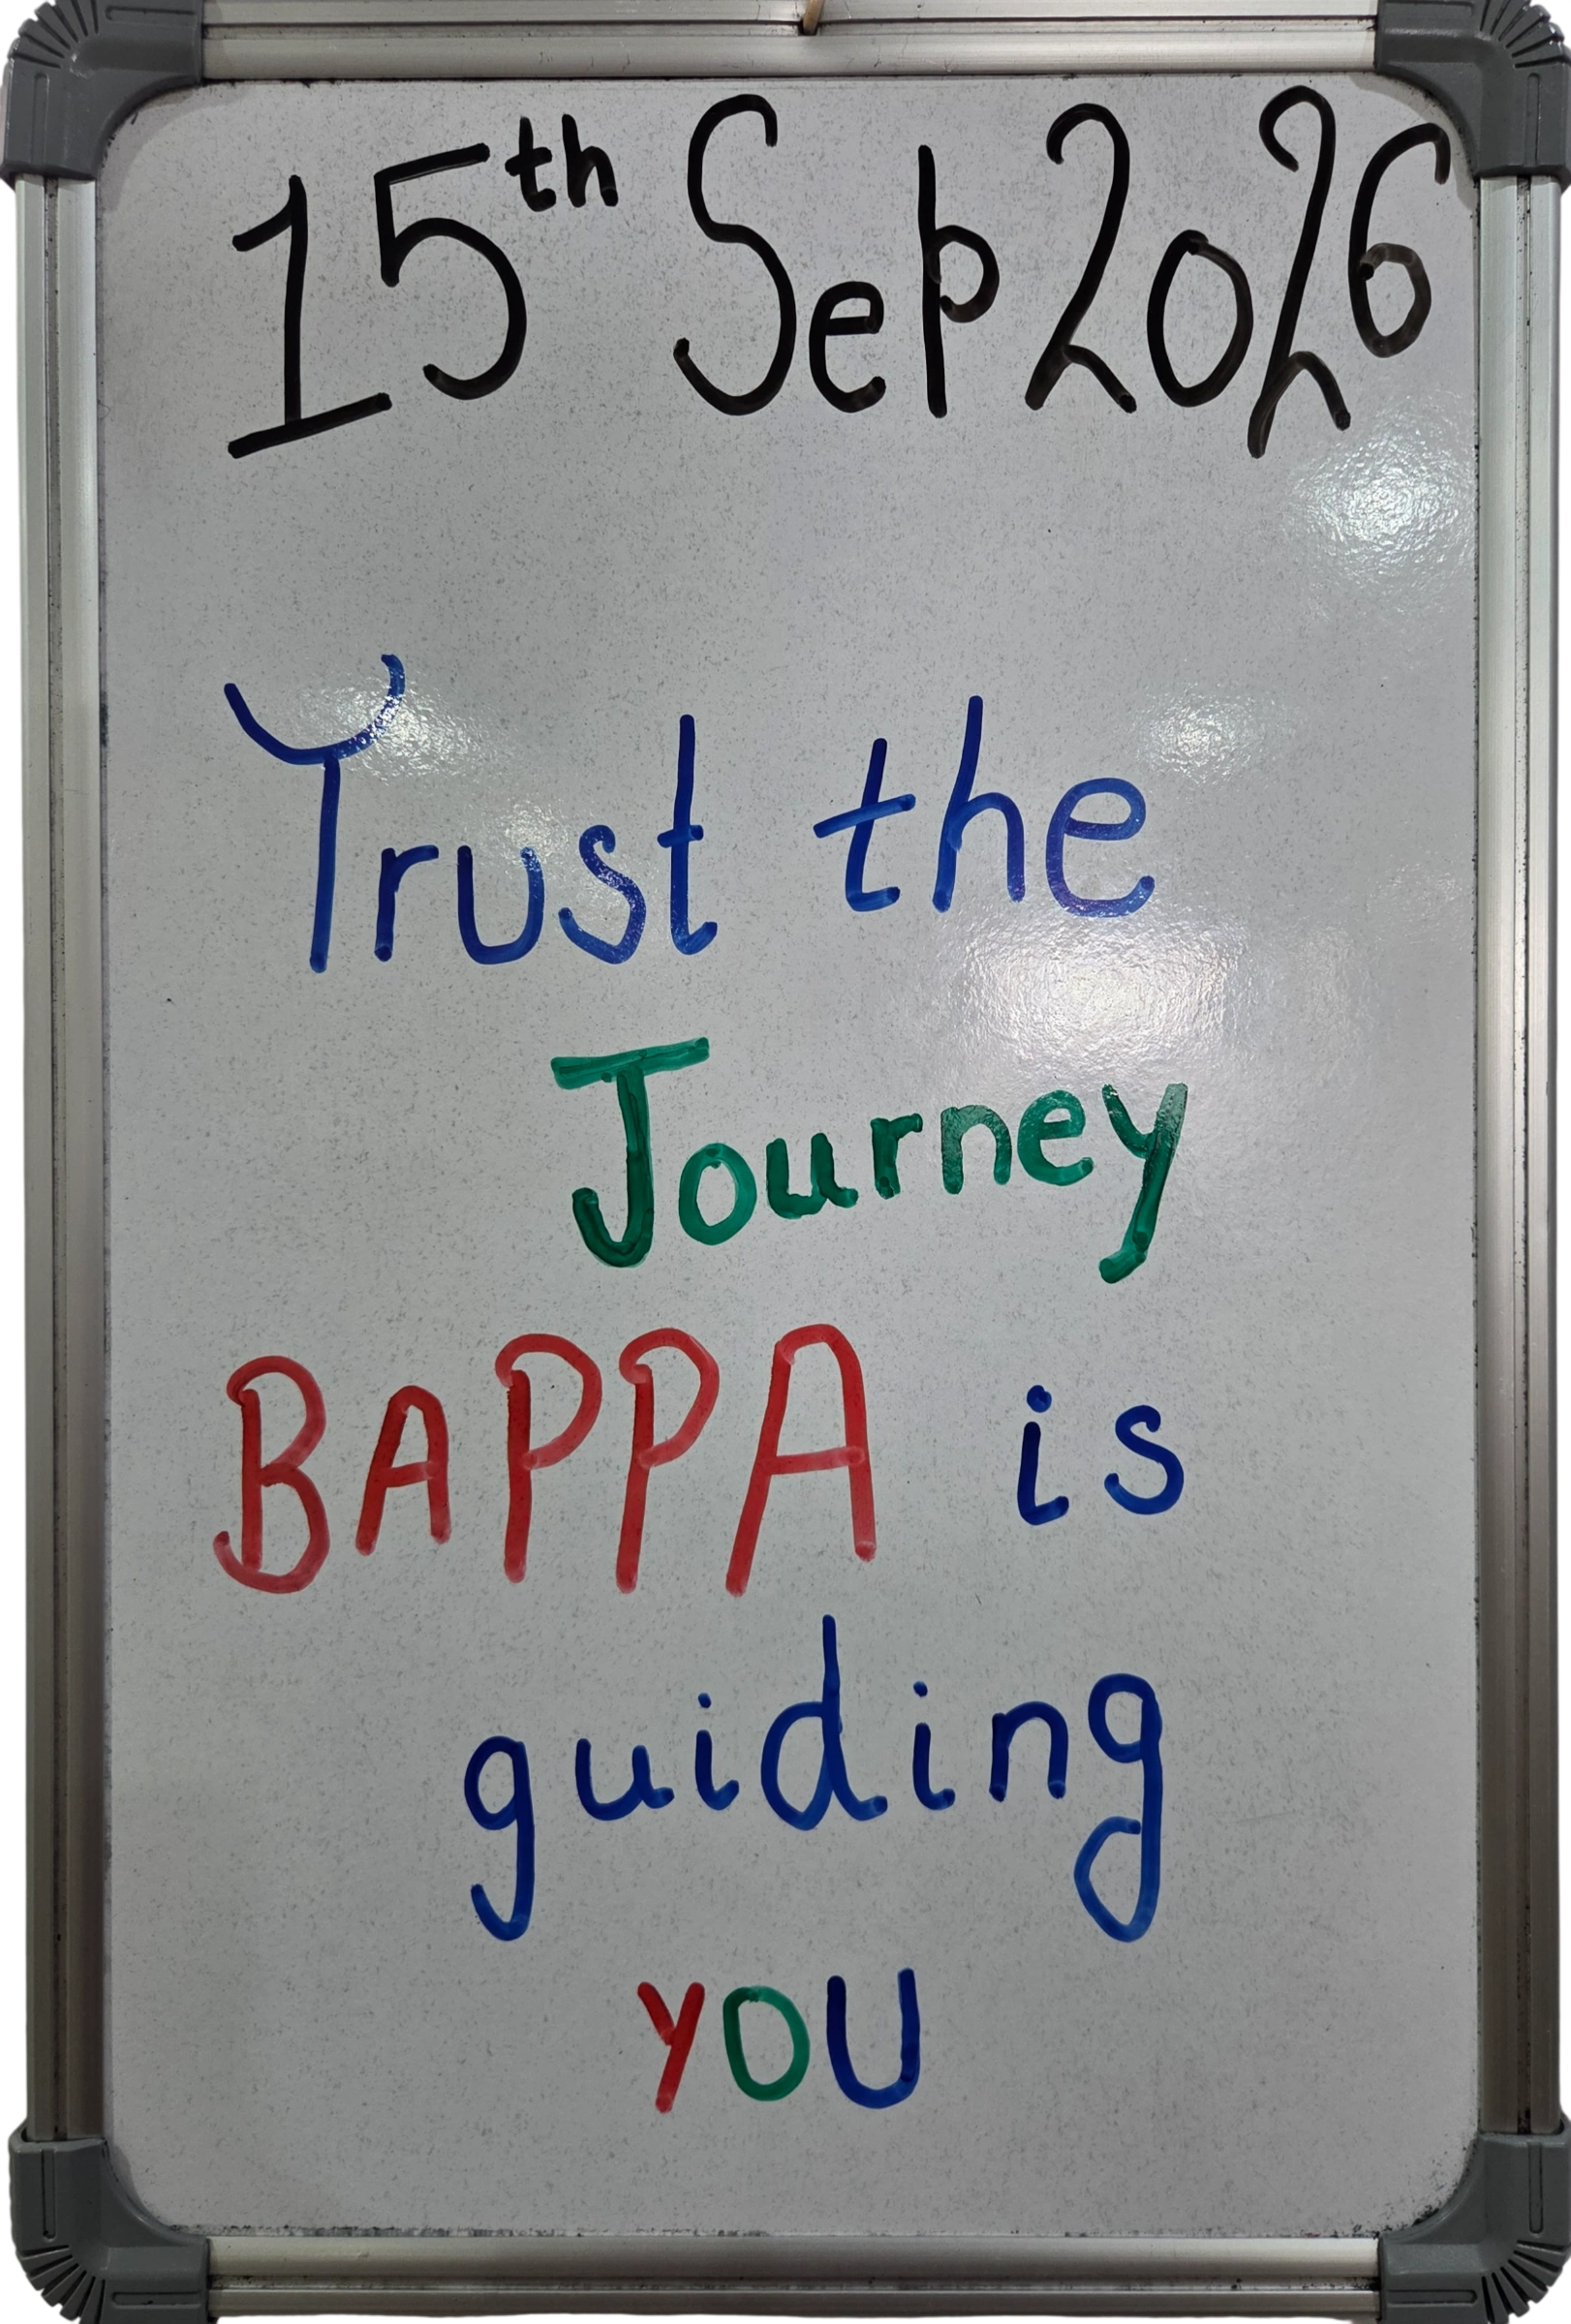 15th Sep 2026
Trust the
Journey
BAPPA is
guiding
YOU